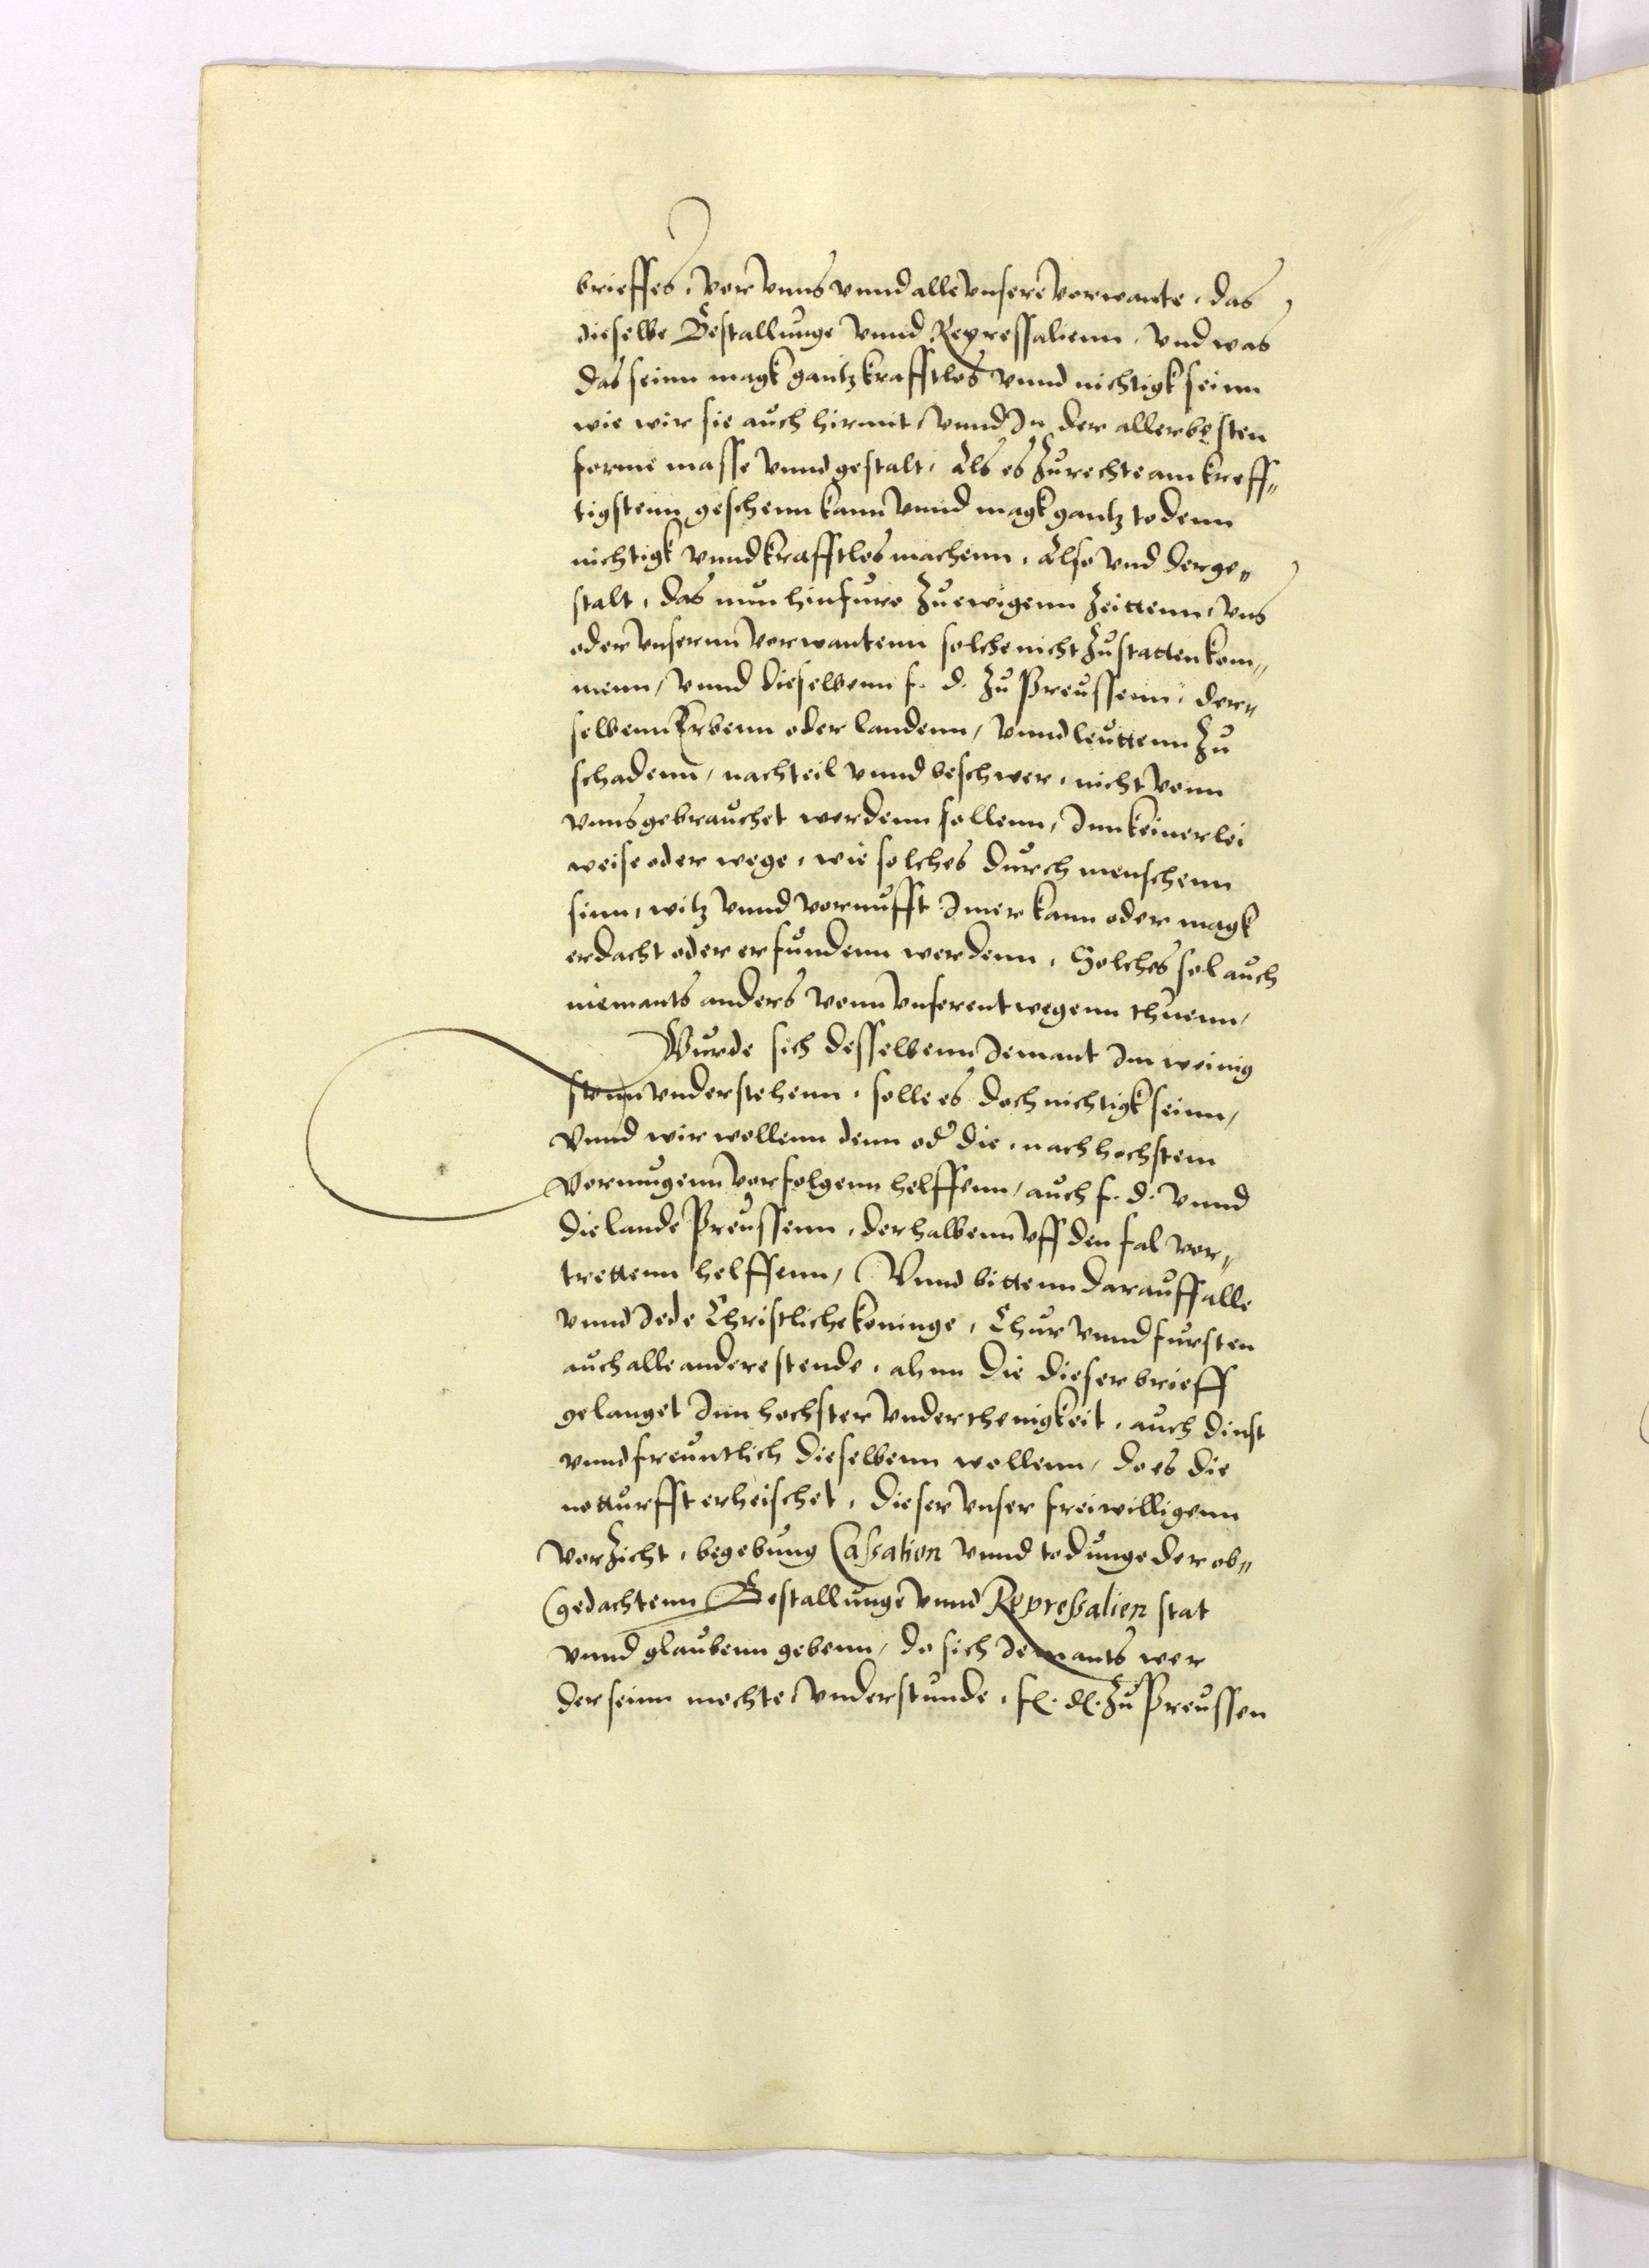 brieffes, vor vnns vnnd alle vnsere vorwante, das
dieselbe Bestallunge vnnd Repressalienn, vnd was
das seinn magk gantz krafftlos vnnd nichtigk seinn
wie wir sie auch hirmit, vnnd In der allerbesten
forme masse vnnd gestalt, Als es Zu rechte am kreff„
tigstenn gescheenn kann vnnd magk gantz todenn
nichtigk vnnd krafftlos machenn, Also vnd derge„
stalt, das nun hinfuro Zu ewigenn Zeittenn, vns
oder vnsernn vorwantenn solche nicht Zu statten kom„
menn, vnnd dieselbenn f. d. Zu Preussenn, der„
selbenn Erbenn oder landenn, vnnd leuttenn Zu
schadenn, nachteil vnnd beschwer, nicht vonn
vnns gebrauchet werdenn sollenn, Inn keinerlei
weise oder wege, wie solches durch menschenn
sinn, witz vnnd vornufft Imer kann oder magk
erdacht oder erfundenn werdenn, Solches sol auch
niemants anders vonn vnserentwegenn thuenn,
Wurde sich desselbenn Iemant Im weinig
stenn vnderstehenn, solle es doch nichtigk seinn,
Vnnd wir wollenn denn od' die, nach hochstem
vormugenn vorfolgenn helffenn, auch f. d. vnnd
die lande Preussenn, derhalbenn vff den fal vor„
trettenn helffenn, Vnnd bittenn darauff alle
vnnd Iede Christliche koninge, Chur vnnd fursten
auch alle andere stende, ahnn die dieser brieff
gelanget Inn hochster vnderthenigkeit, auch dinst
vnnd freuntlich dieselbenn wollenn, do es die
notturfft erheischet, dieser vnser freiwilligenn
vorzicht, begebung Cassation vnnd todunge der ob„
gedachtenn Bestallunge vnnd Repressalien stat
vnnd glaubenn gebenn, do sich Iemants wer
der seinn mochte, vnderstunde, fl. dl. Zu Preussen